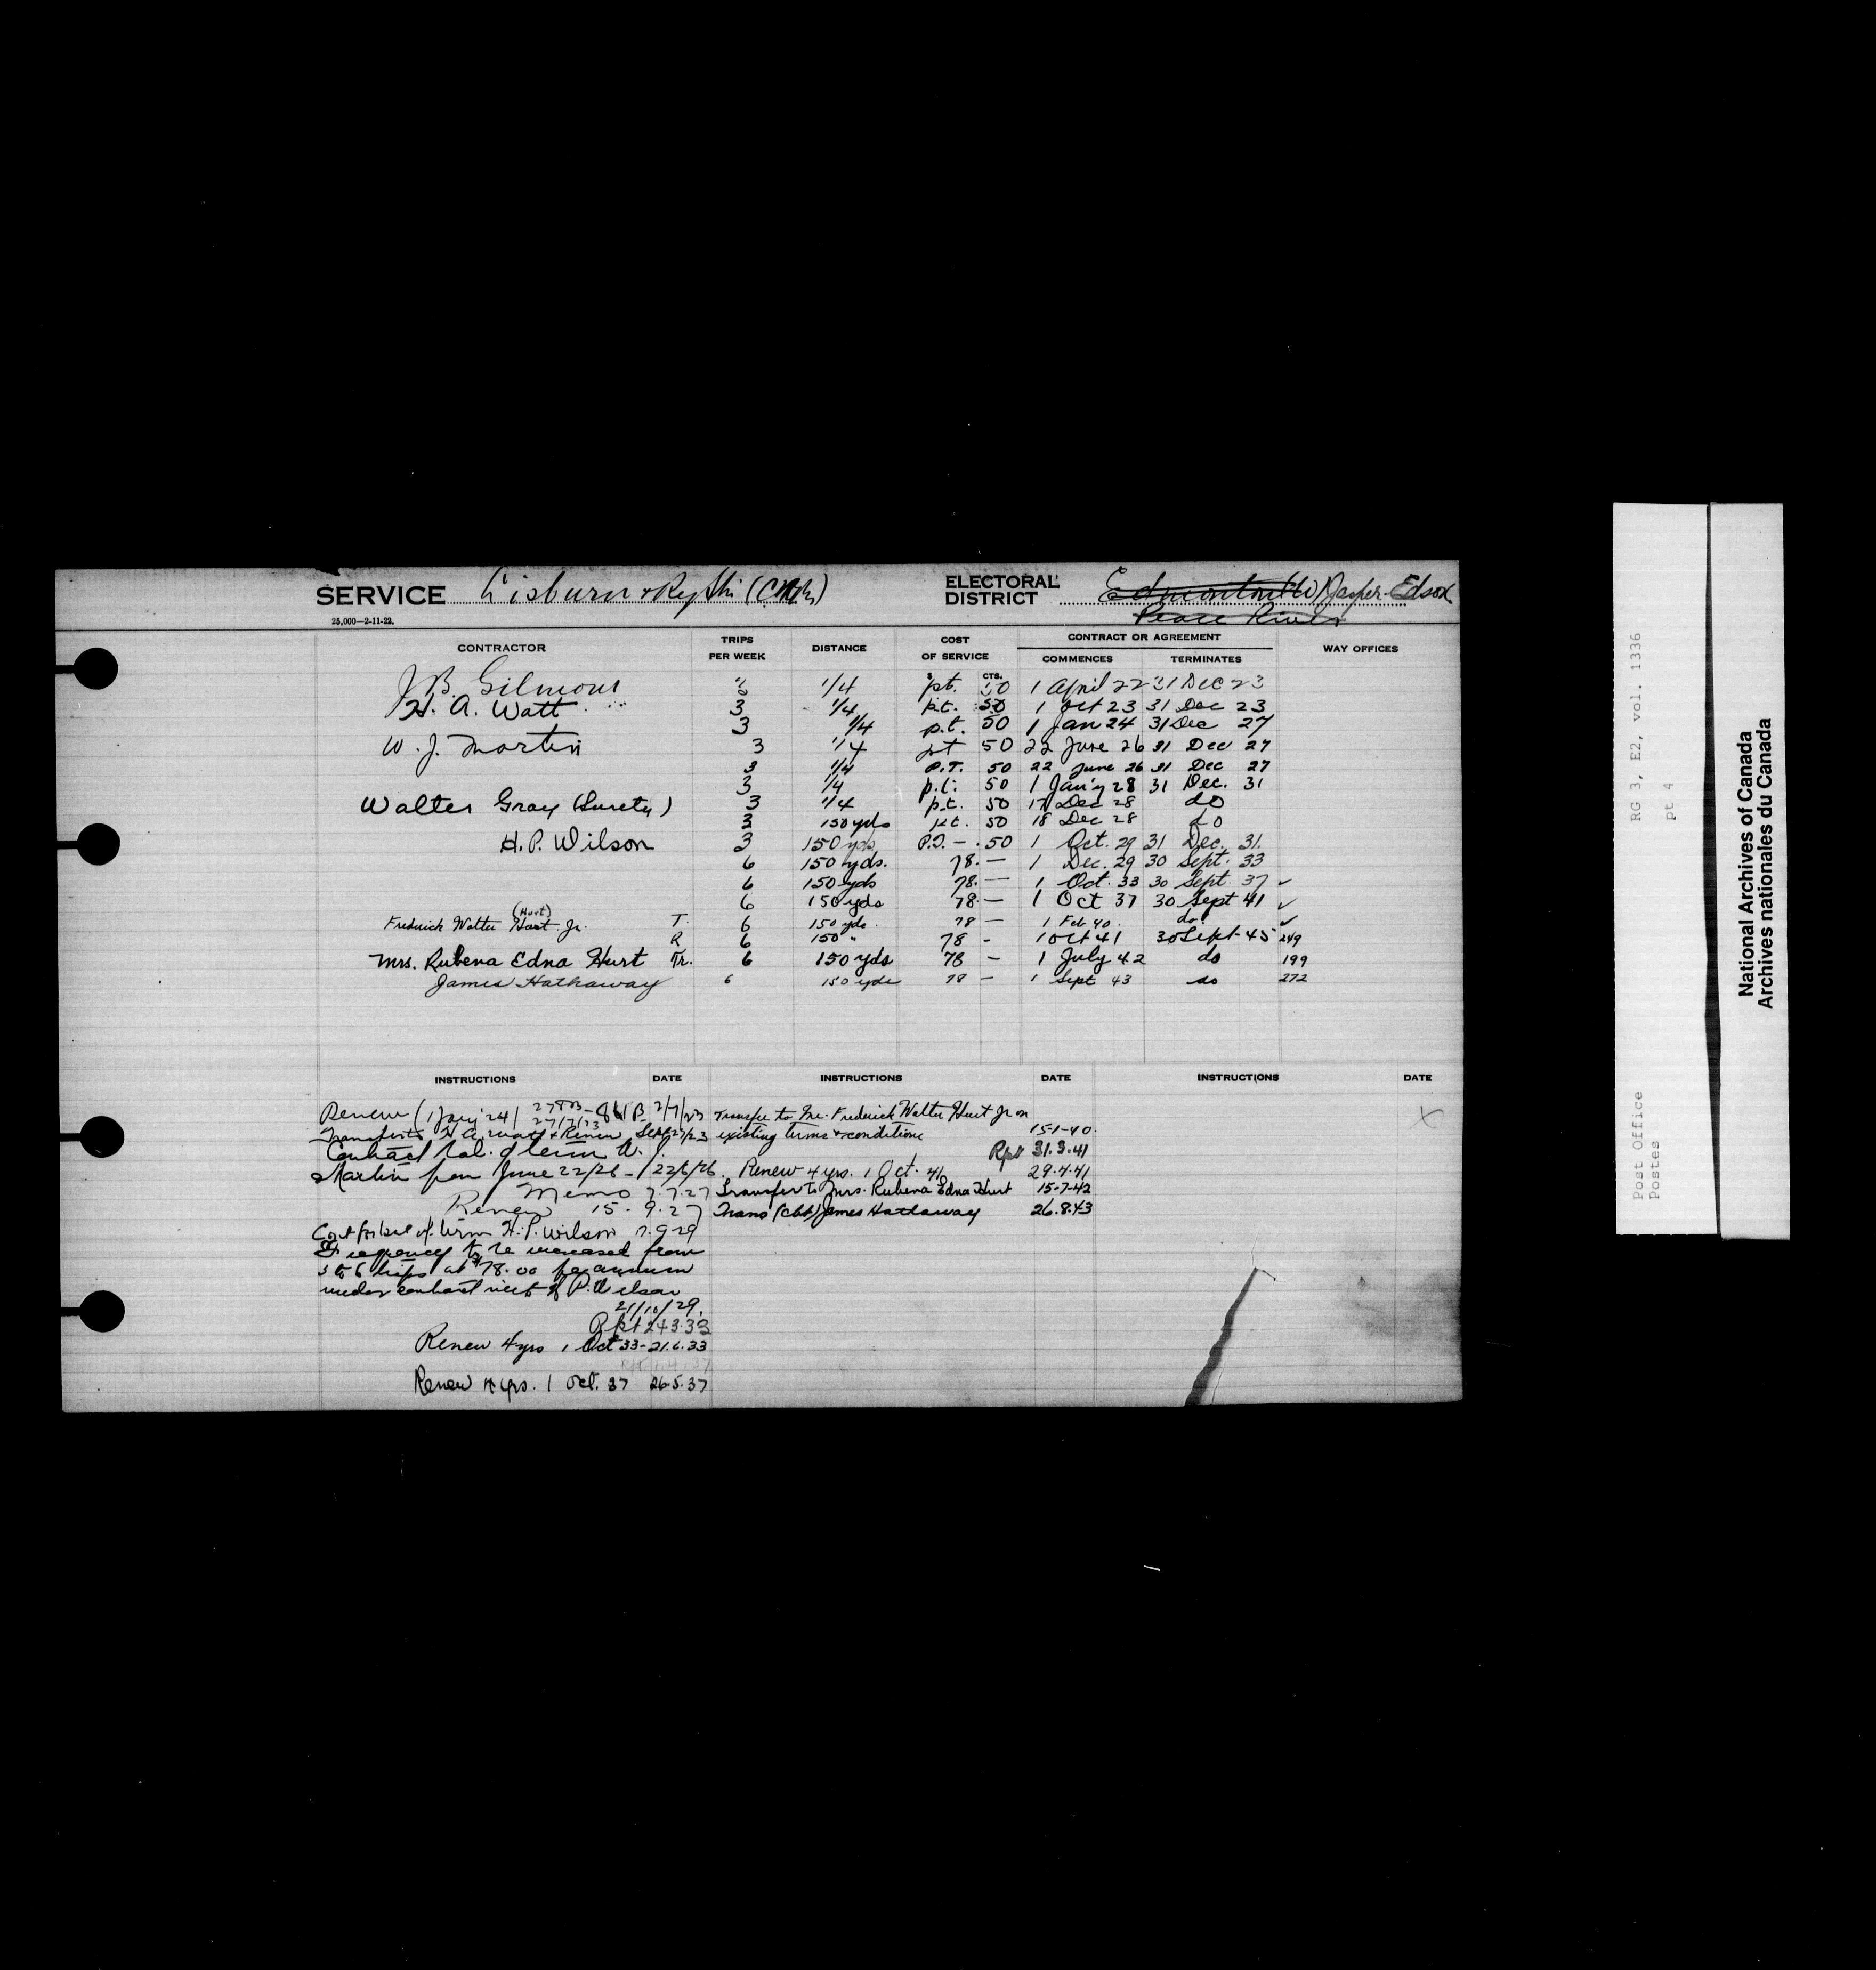 SERVICE Lisburn & Ry Stn (CNR)
ELECTORAL DISTRICT Edmonton (W) Jasper-Edson
Peace River
25,000—2-11-22.
CONTRACTOR TRIPS PER WEEK DISTANCE COST OF SERVICE CONTRACT OR AGREEMENT COMMENCES TERMINATES WAY OFFICES
$ CTS.
J.B. Gilmour 3 1/4 pt. 50 1 April 22 31 Dec 23
H. A. Watt 3 1/4 pt. 50 1 Oct 23 31 Dec 23
3 1/4 p.t. 50 1 Jan 24 31 Dec 27
W. J. Martin 3 1/4 pt 50 22 June 26 31 Dec 27
3 1/4 P.T. 50 22 June 26 31 Dec 27
3 1/4 p.t. 50 1 Jan'y 28 31 Dec. 31
Walter Gray (Surety) 3 1/4 p.t. 50 17 Dec 28 do
3 150 yds pt. 50 18 Dec 28 do
H. P. Wilson 3 150 yds P.T. — .50 1 Oct. 29 31 Dec. 31.
6 150 yds. 78. — 1 Dec. 29 30 Sept. 33
6 150 yds 78. — 1 Oct. 33 30 Sept. 37 ✓
6 150 yds 78 — 1 Oct 37 30 Sept 41 ✓
(Hurt)
Frederick Walter Hart Jr. T. 6 150 yds. 78 — 1 Feb 40. do. ✓
R 6 150 " 78 - 1 Oct 41 30 Sept 45 249
Mrs. Rubena Edna Hurt Tr. 6 150 yds 78 — 1 July 42 do 199
James Hathaway 6 150 yds 78 — 1 Sept 43 do 272
INSTRUCTIONS DATE INSTRUCTIONS DATE INSTRUCTIONS DATE
Renew (1 Jany '24) 27/7/23 2/7/23
Transfer to H. A. Watt & Renew Sept 27/23
Contract bal. of term W. J.
Martin from June 22/26 - 22/6/26.
Memo 7.7.27
Renew 15.9.27
Cont for bal of term H. P. Wilson 7.9.29
Frequency to be increased from
3 to 6 trips at $78.00 per annum
under contract with H. P. Wilson
21/10/29.
Rpt 24.3.33
Renew 4 yrs 1 Oct 33 - 21.6.33
Renew 4 yrs. 1 Oct. 37 26.5.37
Transfer to Mr. Frederick Walter Hurt Jr on
existing terms & conditions 15-1-40.
Rpt 31.3.41
Renew 4 yrs. 1 Oct. 41 29.4.41
Transfer to Mrs. Rubena Edna Hurt 15-7-42
Trans (Cbt) James Hathaway 26.8.43
X
RG 3, E2, vol. 1336
pt 4
Post Office
Postes
National Archives of Canada
Archives nationales du Canada